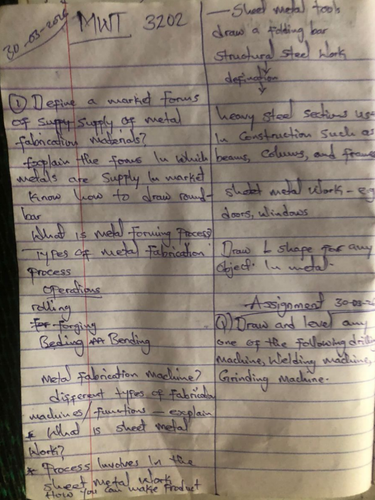 30-03-2026
MWT 3202
① Define a market forms
of supply supply of metal
fabrication materials?
Explain the forms in which
metals are supply in market
Know how to draw round-
bar
What is metal forming process?
Types of metal fabrication
process
Operations
rolling
for forging
Bending
metal fabrication machine?
different types of fabrication
machines/functions — explain
* What is sheet metal
Work?
* Process Involves in the
sheet metal work
How you can make product
— Sheet metal tools
draw a folding bar
Structural steel work
defination
heavy steel sections use
In Construction such as
beams, Colums, and frames
sheet metal work - eg
doors, windows
Draw L shape for any
object in metal
Assignment 30-03-26
Q) Draw and level any
one of the following drilling
machine, Welding machine,
Grinding machine.